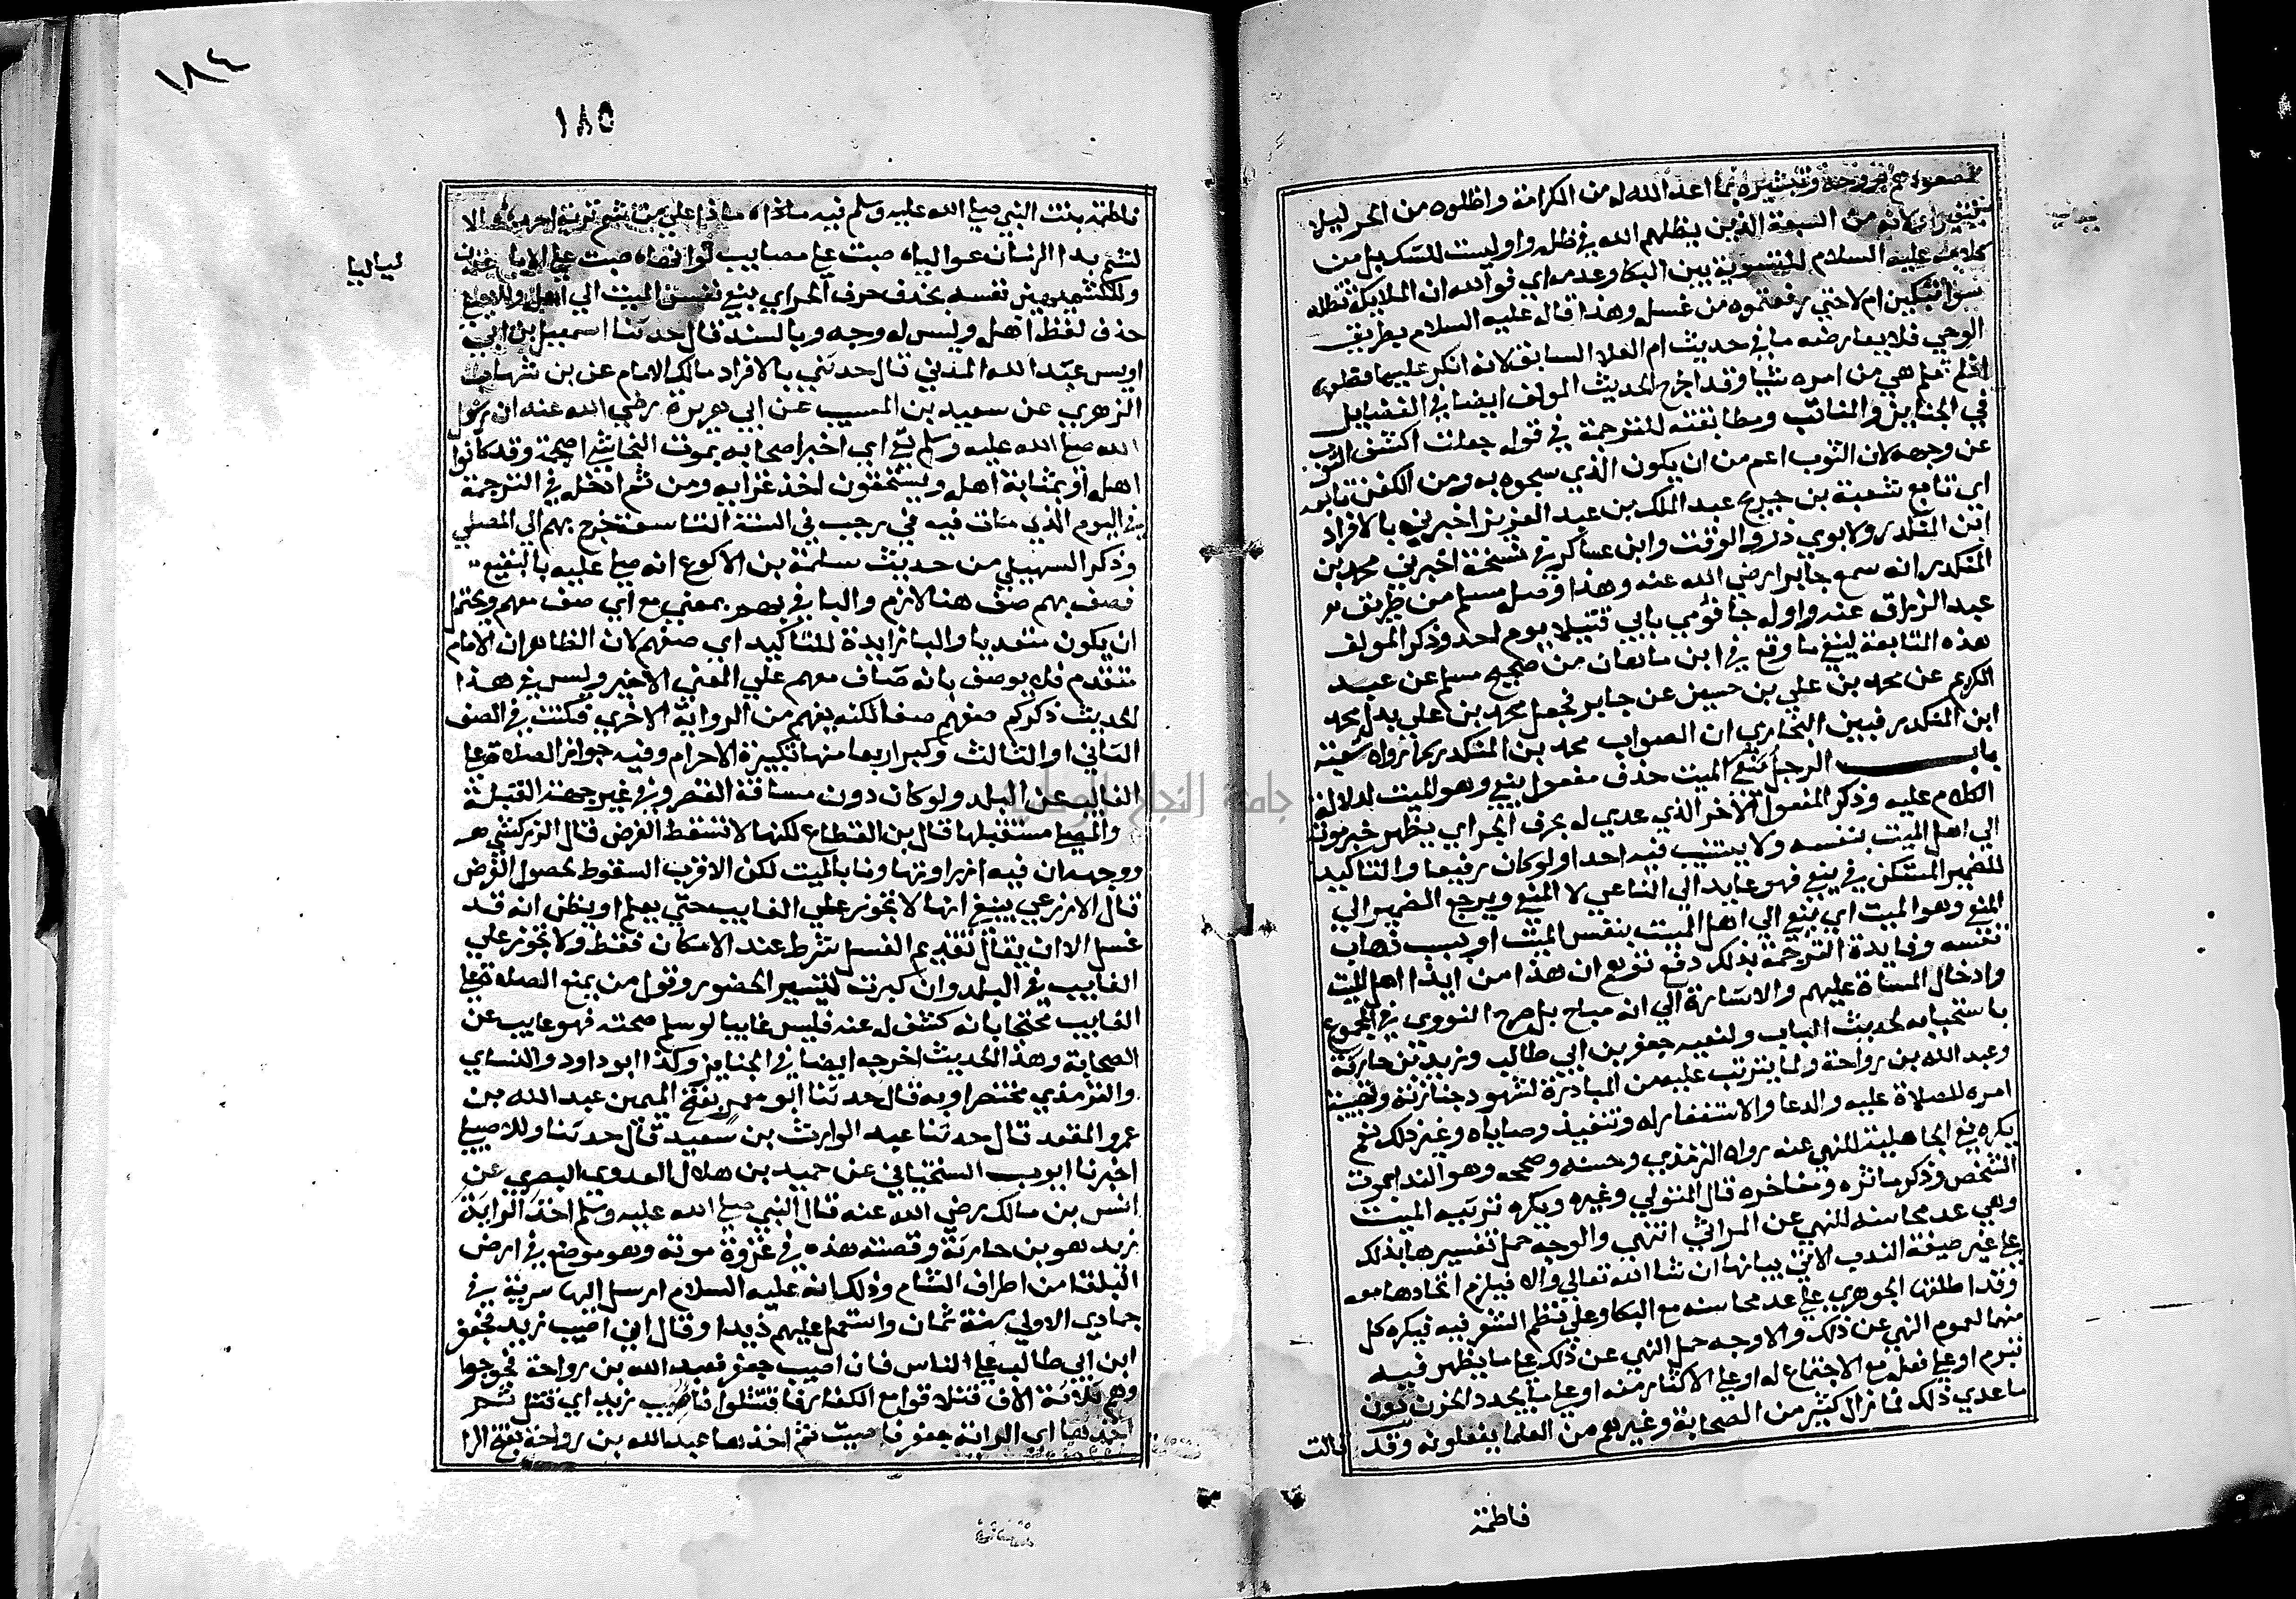 لصعودهم بروحه وتبشيره بما اعد الله له من الكرامة واظلوه من الحر ليلا
يتغير او لانه من السبعة الذين يظلهم الله في ظله واو ليست للشك بل من
كلامه عليه السلام للتسوية بين البكا وعدمه اي فوالله ان الملايكة تظله
سوا تبكين ام لا حتي رفعتموه من غسله وهذا قاله عليه السلام بطريق
الوحي فلا يعارضه ما في حديث ام العلا السابق لانه انكر عليها قطعها
اذ لم تعلم هي من امره شيا وقد اخرج الحديث المولف ايضا في الفضايل
في الجنايز والمناقب ومطابقته للترجمة في قوله جعلت اكشف الثوب
عن وجهه لان الثوب اعم من ان يكون الذي سجوه به ومن الكفن تابعه
اي تابع شعبة بن جريج عبد الملك بن عبد العزيز اخبرني بالافراد
ابن المنكدر ولابوي ذر والوقت وابن عساكر في نسخة اخبرني محمد بن
المنكدر انه سمع جابرا رضي الله عنه وهذا وصله مسلم من طريق
عبد الرزاق عنه واوله جا قومي بابي قتيلا يوم احد وذكر المولف
هذه المتابعة لينفي ما وقع في ابن ماهان من صحيح مسلم عن عبد
الكريم عن محمد بن علي بن حسين عن جابر فجعل محمد بن علي بدل محمد
ابن المنكدر فبين البخاري ان الصواب محمد بن المنكدر كما رواه شعبة
باب الرجل ينعي الميت حذف مفعول ينعي وهو الميت لدلالة
الكلام عليه وذكر المفعول الاخر الذي عدي له بحرف الجر اي يظهر خبر موته
الي اهل الميت بنفسه ولا يستنيب فيه احدا ولو كان رفيعا والتاكيد
للضمير المستكن في ينعي فهو عايد الي الناعي لا المنعي ويرجع الضمير الي
المنعي وهو الميت اي ينعي الي اهل الميت بنفس الميت او بسبب ذهاب
نفسه وفايدة الترجمة بذلك دفع توهم ان هذا من ايذا اهل الميت
وادخال المساة عليهم والاشارة الي انه مباح بل صرح النووي في المجموع
باستحبابه لحديث الباب ولنعيه جعفر بن ابي طالب وزيد بن حارثة
وعبد الله بن رواحة ولما يترتب عليه من المبادرة لشهود جنازته وتهيئة
امره للصلاة عليه والدعا والاستغفار له وتنفيذ وصاياه وغير ذلك نعم
يكره نعي الجاهلية للنهي عنه رواه الترمذي وحسنه وصححه وهو الندا بموت
الشخص وذكر ماثره ومفاخره قال المتولي وغيره ويكره ترثيه الميت
وهي عد محاسنه للنهي عن المراثي انتهي والوجه حمل تفسيرها بذلك
علي غير صيغة الندب الاتي بيانها ان شا الله تعالي والا فيلزم اتحادها معه
وقد اطلقها الجوهري علي عد محاسنه مع البكا وعلي نظم الشعر فيه فيكره كل
منهما لعموم النهي عن ذلك والاوجه حمل النهي عن ذلك علي ما يظهر فيه
تبرم او علي فعله مع الاجتماع له او علي الاكثار منه او علي ما يجدد الحزن دون
ما عدي ذلك فما زال كثير من الصحابة وغيرهم من العلما يفعلونه وقد قالت
فاطمة
١٨٤
١٨٥
فاطمة بنت النبي صلي الله عليه وسلم فيه ماذا علي من شم تربة احمد الا
ليا ليا
يشم مدا الزمان غواليا صبت علي مصايب لو انها صبت علي الايام عدن
وللكشميهني نفسه بحذف حرف الجر اي ينعي نفس الميت الي اهله وللاصيلي
حذف لفظ اهل وليس له وجه وبالسند قال حدثنا اسمعيل بن ابي
اويس عبد الله المدني قال حدثني بالافراد مالك الامام عن بن شهاب
الزهري عن سعيد بن المسيب عن ابي هريرة رضي الله عنه ان رسول
الله صلي الله عليه وسلم نعي اي اخبر اصحابه بموت النجاشي اصحمة وقد كانوا
اهله او بمثابة اهله ويستحقون اخذ عزايه ومن ثم ادخله في الترجمة
في اليوم الذي مات فيه في رجب في السنة التاسعة خرج بهم الي المصلي
وذكر السهيلي من حديث سلمة بن الاكوع انه صلي عليه بالبقيع
فصف بهم صف هنا لازم والبا في بهم بمعني مع اي صف معهم ويحتمل
ان يكون متعديا والبا زايدة للتاكيد اي صفهم لان الظاهر ان الامام
متقدم فلا يوصف بانه صاف معهم علي المعني الاخير وليس في هذا
الحديث ذكر كم صفهم صفا لكنه يفهم من الرواية الاخري فكنت في الصف
الثاني او الثالث وكبر اربعا منها تكبيرة الاحرام وفيه جواز الصلاة علي
الغايب عن البلد ولو كان دون مسافة القصر وفي غير جهة القبلة
والمصلي مستقبلها قال بن القطاع لكنها لا تسقط الفرض قال الزركشي
ووجهه ان فيه ازرا وتهاونا بالميت لكن الاقرب السقوط لحصول الفرض
قال الاذرعي ينبغي انها لا تجوز علي الغايب حتي يعلم او يظن انه قد
غسل الا ان يقال تقديم الغسل شرط عند الامكان فقط ولا تجوز علي
الغايب في البلد وان كبرت لتيسير الحضور وقول من يمنع الصلاة علي
الغايب محتجا بانه كشف له عنه فليس غايبا لو سلم صحته فهو غايب عن
الصحابة وهذا الحديث اخرجه ايضا في الجنايز وكذا ابو داود والنساي
والترمذي مختصرا وبه قال حدثنا ابو معمر بفتح الميمين عبد الله بن
عمرو المقعد قال حدثنا عبد الوارث بن سعيد قال حدثنا وللاصيلي
اخبرنا ايوب السختياني عن حميد بن هلال العدوي البصري عن
انس بن مالك رضي الله عنه قال النبي صلي الله عليه وسلم اخذ الراية
زيد هو بن حارثة وقصته هذه في غزوة موتة وهو موضع في ارض
البلقا من اطراف الشام وذلك انه عليه السلام ارسل اليها سرية في
جمادي الاولي سنة ثمان واستعمل عليهم زيدا وقال ان اصيب زيد فجعفر
ابن ابي طالب علي الناس فان اصيب جعفر فعبد الله بن رواحة فخرجوا
وهم ثلاثة الاف فتلاقوا مع الكفار فاقتتلوا فاصيب زيد اي قتل ثم
اخذها اي الراية جعفر فاصيب ثم اخذها عبد الله بن رواحة بفتح الرا
جامعة النجاح الوطنية